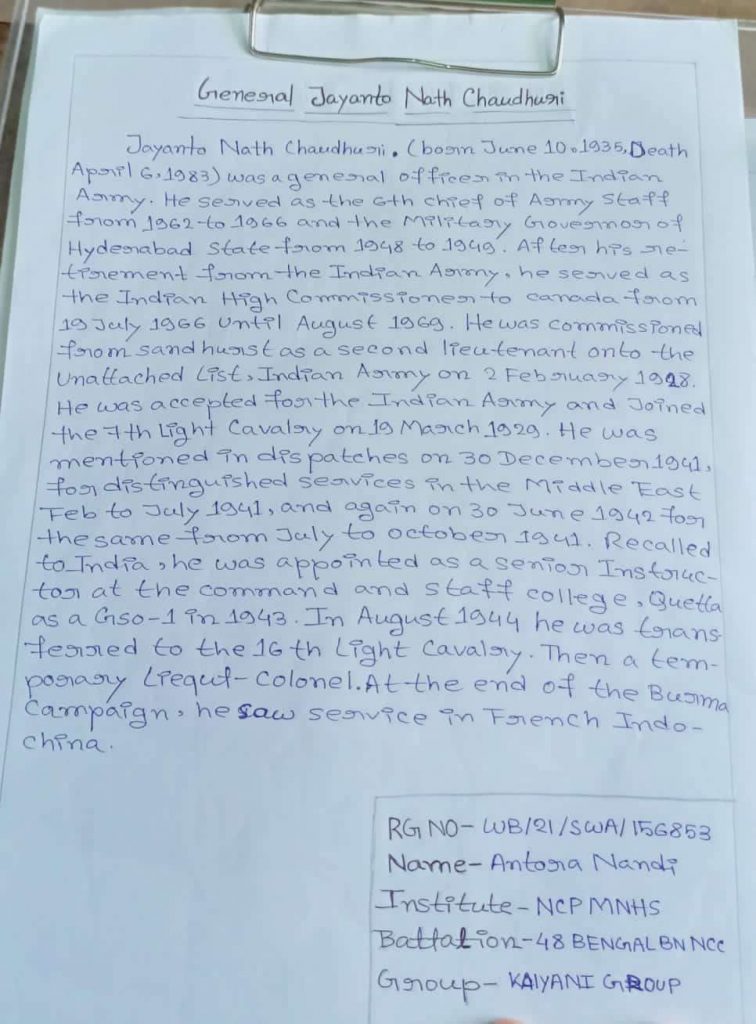 General Jayanto Nath Chaudhuri
Jayanto Nath Chaudhuri. (born June 10.1935, Death
April 6,1983) was a general officer in the Indian
Army. He served as the 6th chief of Army Staff
from 1962 to 1966 and the Military Governor of
Hyderabad State from 1948 to 1949. After his re-
tirement from the Indian Army, he served as
the Indian High Commissioner to canada from
19 July 1966 Until August 1969. He was commissioned
from sandhurst as a second lieutenant onto the
Unattached List, Indian Army on 2 February 1928.
He was accepted for the Indian Army and Joined
the 7th Light Cavalry on 19 March 1929. He was
mentioned in dispatches on 30 December 1941,
for distinguished services in the Middle East
Feb to July 1941, and again on 30 June 1942 for
the same from July to october 1941. Recalled
to India, he was appointed as a senior Instruc-
tor at the command and staff college, Quetta
as a GSO-1 in 1943. In August 1944 he was trans
ferred to the 16 th Light Cavalry. Then a tem-
porary Liequt-Colonel. At the end of the Burma
Campaign, he saw service in French Indo-
china.
RG NO- WB/21/SWA/156853
Name- Antora Nandi
Institute- NCPMNHS
Battalion-48 BENGAL BN NCC
Group- KAlYANI GROUP